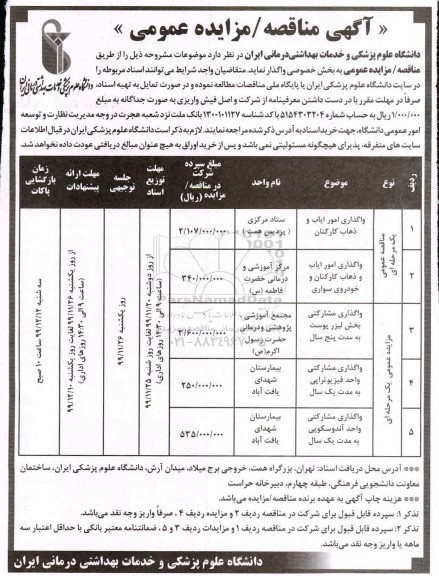 « آگهی مناقصه/مزایده عمومی »
دانشگاه علوم پزشکی و خدمات بهداشتی درمانی ایران در نظر دارد موضوعات مشروحه ذیل را از طریق
مناقصه / مزایده عمومی به بخش خصوصی واگذار نماید. متقاضیان واجد شرایط می‌توانند اسناد مربوطه را
در سایت دانشگاه علوم پزشکی ایران یا پایگاه ملی مناقصات مطالعه نموده و در صورت تمایل به تهیه اسناد،
صرفاً در مهلت مقرر با در دست داشتن معرفینامه از شرکت و اصل فیش واریزی به صورت جداگانه به مبلغ
۱/۰۰۰/۰۰۰ ریال به حساب شماره ۵۱۵۴۳۰۳۲۰۴ با کد شناسه ۱۳۰۰۱۰۱۱۲۷ بانک ملت نزد شعبه هجرت در وجه مدیریت نظارت و توسعه
امور عمومی دانشگاه، جهت خرید اسناد به آدرس ذکر شده مراجعه نمایند. لازم به ذکر است دانشگاه علوم پزشکی ایران در قبال اطلاعات
سایت های متفرقه، پذیرای هیچگونه مسئولیتی نمی باشد و پس از خرید اوراق به هیچ عنوان مبالغ دریافتی عودت داده نخواهد شد.
ردیف
نوع
موضوع
نام واحد
مبلغ سپرده شرکت در مناقصه / مزایده (ریال)
مهلت توزیع اسناد
جلسه توجیهی
مهلت ارائه پیشنهادات
زمان بازگشایی پاکات
مناقصه عمومی یک مرحله ای
۱
واگذاری امور ایاب و ذهاب کارکنان
ستاد مرکزی (پردیس همت)
۲/۱۰۷/۰۰۰/۰۰۰
۲
واگذاری امور ایاب و ذهاب کارکنان خودروی سواری
مرکز آموزشی و درمانی حضرت فاطمه (س)
۳۴۰/۰۰۰/۰۰۰
مزایده عمومی یک مرحله ای
۳
واگذاری مشارکتی بخش لیزر پوست به مدت پنج سال
مجتمع آموزشی، پژوهشی و درمانی حضرت رسول اکرم(ص)
۲/۶۰۰/۰۰۰/۰۰۰
۴
واگذاری مشارکتی واحد فیزیوتراپی به مدت یک سال
بیمارستان شهدای یافت آباد
۲۵۰/۰۰۰/۰۰۰
۵
واگذاری مشارکتی واحد آندوسکوپی به مدت یک سال
بیمارستان شهدای یافت آباد
۵۳۵/۰۰۰/۰۰۰
از روز دوشنبه ۹۹/۱۱/۲۰ لغایت روز شنبه ۹۹/۱۱/۲۵
(ساعت ۹ الی ۱۴:۳۰ روزهای اداری)
روز یکشنبه ۹۹/۱۱/۲۶
از روز یکشنبه ۹۹/۱۱/۲۶ لغایت روز یکشنبه ۹۹/۱۲/۱۰
(ساعت ۹ الی ۱۴:۳۰ روزهای اداری)
سه شنبه ۹۹/۱۲/۱۲ ساعت ۱۰ صبح
ParsNamadData
۰۲۱-۸۸۳۴۹۶۷۰
*** آدرس محل دریافت اسناد: تهران، بزرگراه همت، خروجی برج میلاد، میدان آرش، دانشگاه علوم پزشکی ایران، ساختمان
معاونت دانشجویی فرهنگی، طبقه چهارم، دبیرخانه حراست
*** هزینه چاپ آگهی به عهده برنده مناقصه/مزایده می‌باشد.
تذکر ۱: سپرده قابل قبول برای شرکت در مناقصه ردیف ۲ و مزایده ردیف ۴ ، صرفاً واریز وجه نقد می‌باشد.
تذکر ۲: سپرده قابل قبول برای شرکت در مناقصه ردیف ۱ و مزایدات ردیف ۳ و ۵ ، ضمانتنامه معتبر بانکی با حداقل اعتبار سه
ماهه یا واریز وجه نقد می‌باشد.
دانشگاه علوم پزشکی و خدمات بهداشتی درمانی ایران